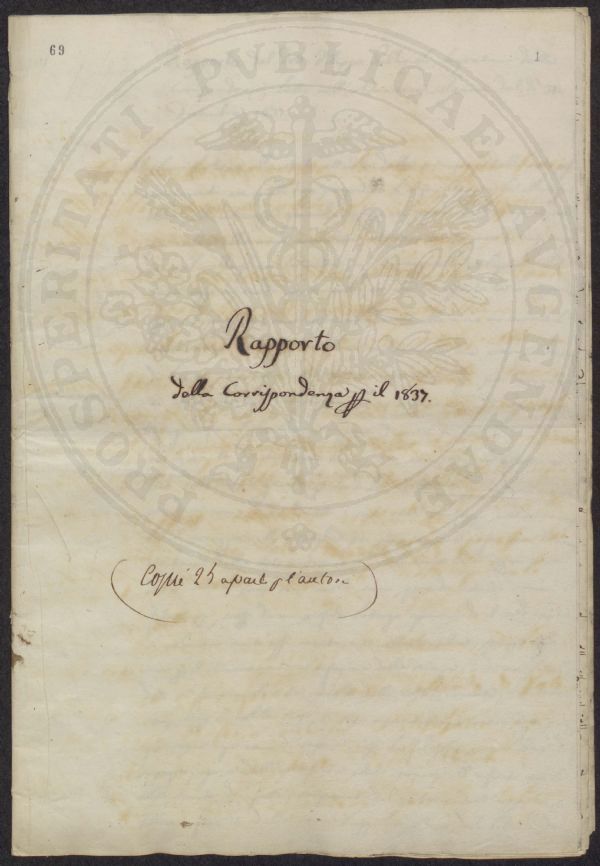 69
1
PROSPERITATI PVBLICAE AVGENDAE
Rapporto
della Corrispondenza p il 1837.
(Copié 25 a part p l'auton)